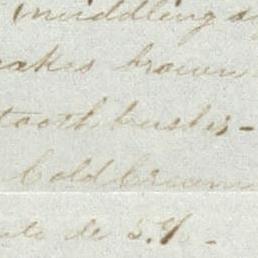 middling
cakes brown
tooth brushes -
Cold Cream
de